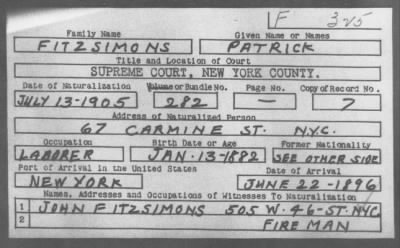 F 325
Family Name Given Name or Names
FITZSIMONS PATRICK
Title and Location of Court
SUPREME COURT, NEW YORK COUNTY.
Date of Naturalization Volume or Bundle No. Page No. Copy of Record No.
JULY 13-1905 282 — 7
Address of Naturalized Person
67 CARMINE ST. N.Y.C.
Occupation Birth Date or Age Former Nationality
LABORER JAN. 13-1882 SEE OTHER SIDE
Port of Arrival in the United States Date of Arrival
NEW YORK JUNE 22-1896
Names, Addresses and Occupations of Witnesses To Naturalization
1 JOHN FITZSIMONS 505 W. 46-ST. NYC
2 FIREMAN